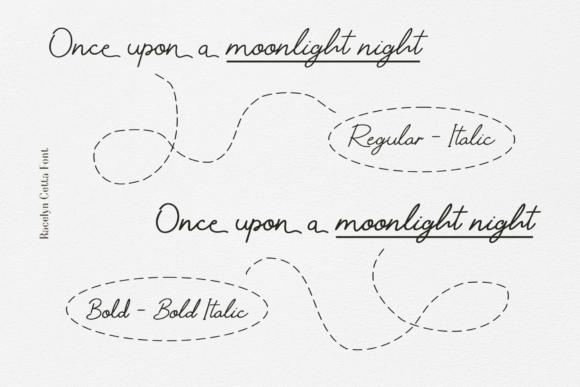 Once upon a moonlight night
Regular - Italic
Racelyn Cetta Font
Once upon a moonlight night
Bold - Bold Italic